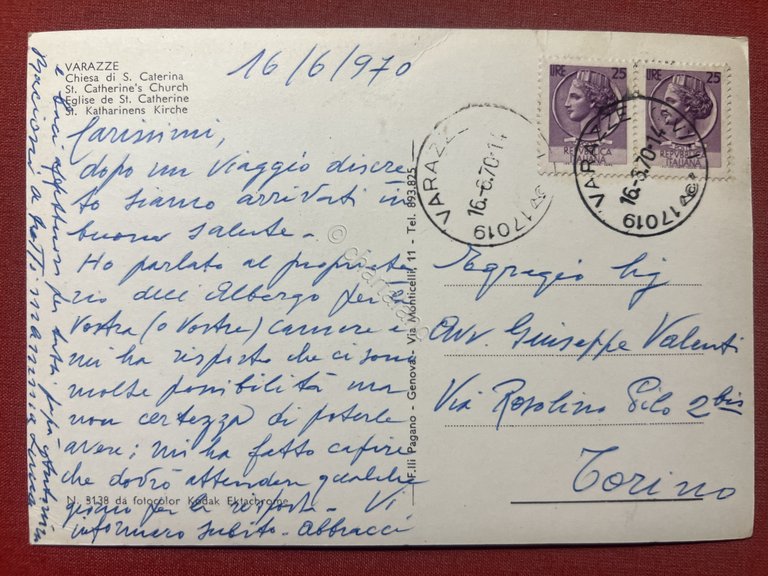 VARAZZE
Chiesa di S. Caterina
St. Catherine's Church
Eglise de St. Catherine
St. Katharinens Kirche
16/6/970
Carissimi,
dopo un viaggio discre-
to siamo arrivati in
buona salute.
Ho parlato al proprieta
rio dell'Albergo per la
Vostra (o Vostre) camere e
mi ha risposto che ci sono
molte possibilità ma
non certezza di poterle
avere; mi ha fatto capire
che dovrò attendere qualche
giorno per la risposta. Vi
informerò subito. Abbracci
e baci affettuosi per
bacioni a tutti mamma
N. 3138 da fotocolor Kodak Ektachrome
F.lli Pagano - Genova - Via Monticelli, 11 - Tel. 893.825
LIRE 25
REPVBBLICA ITALIANA
LIRE 25
REPVBBLICA ITALIANA
VARAZZE
16.-6.70.-14
17019
VARAZZE (SV)
16.-6.70.-14
17019
© charta
Egregio Sig
Avv. Giuseppe Valenti
Via Rosolino Pilo 2 bis
Torino